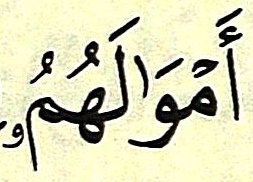 أَمۡوَٰلَهُمُ